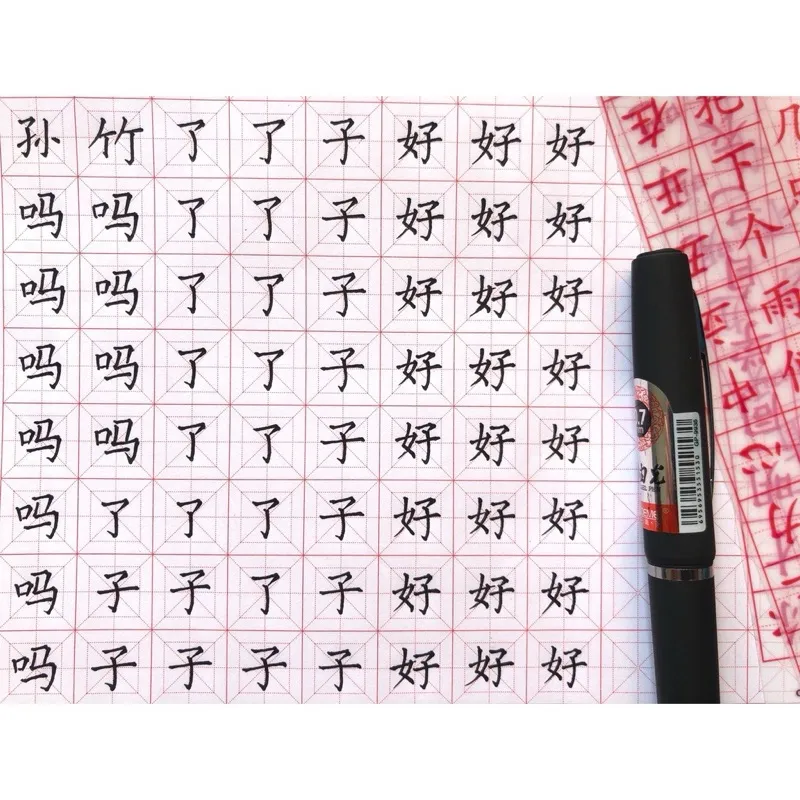 孙 竹 了 了 子 好 好 好
吗 吗 了 了 子 好 好 好
吗 吗 了 了 子 好 好 好
吗 吗 了 了 子 好 好 好
吗 吗 了 了 子 好 好 好
吗 了 了 了 子 好 好 好
吗 子 子 了 子 好 好 好
吗 子 子 子 子 好 好 好
在
正 下
个
雨
中
心
力